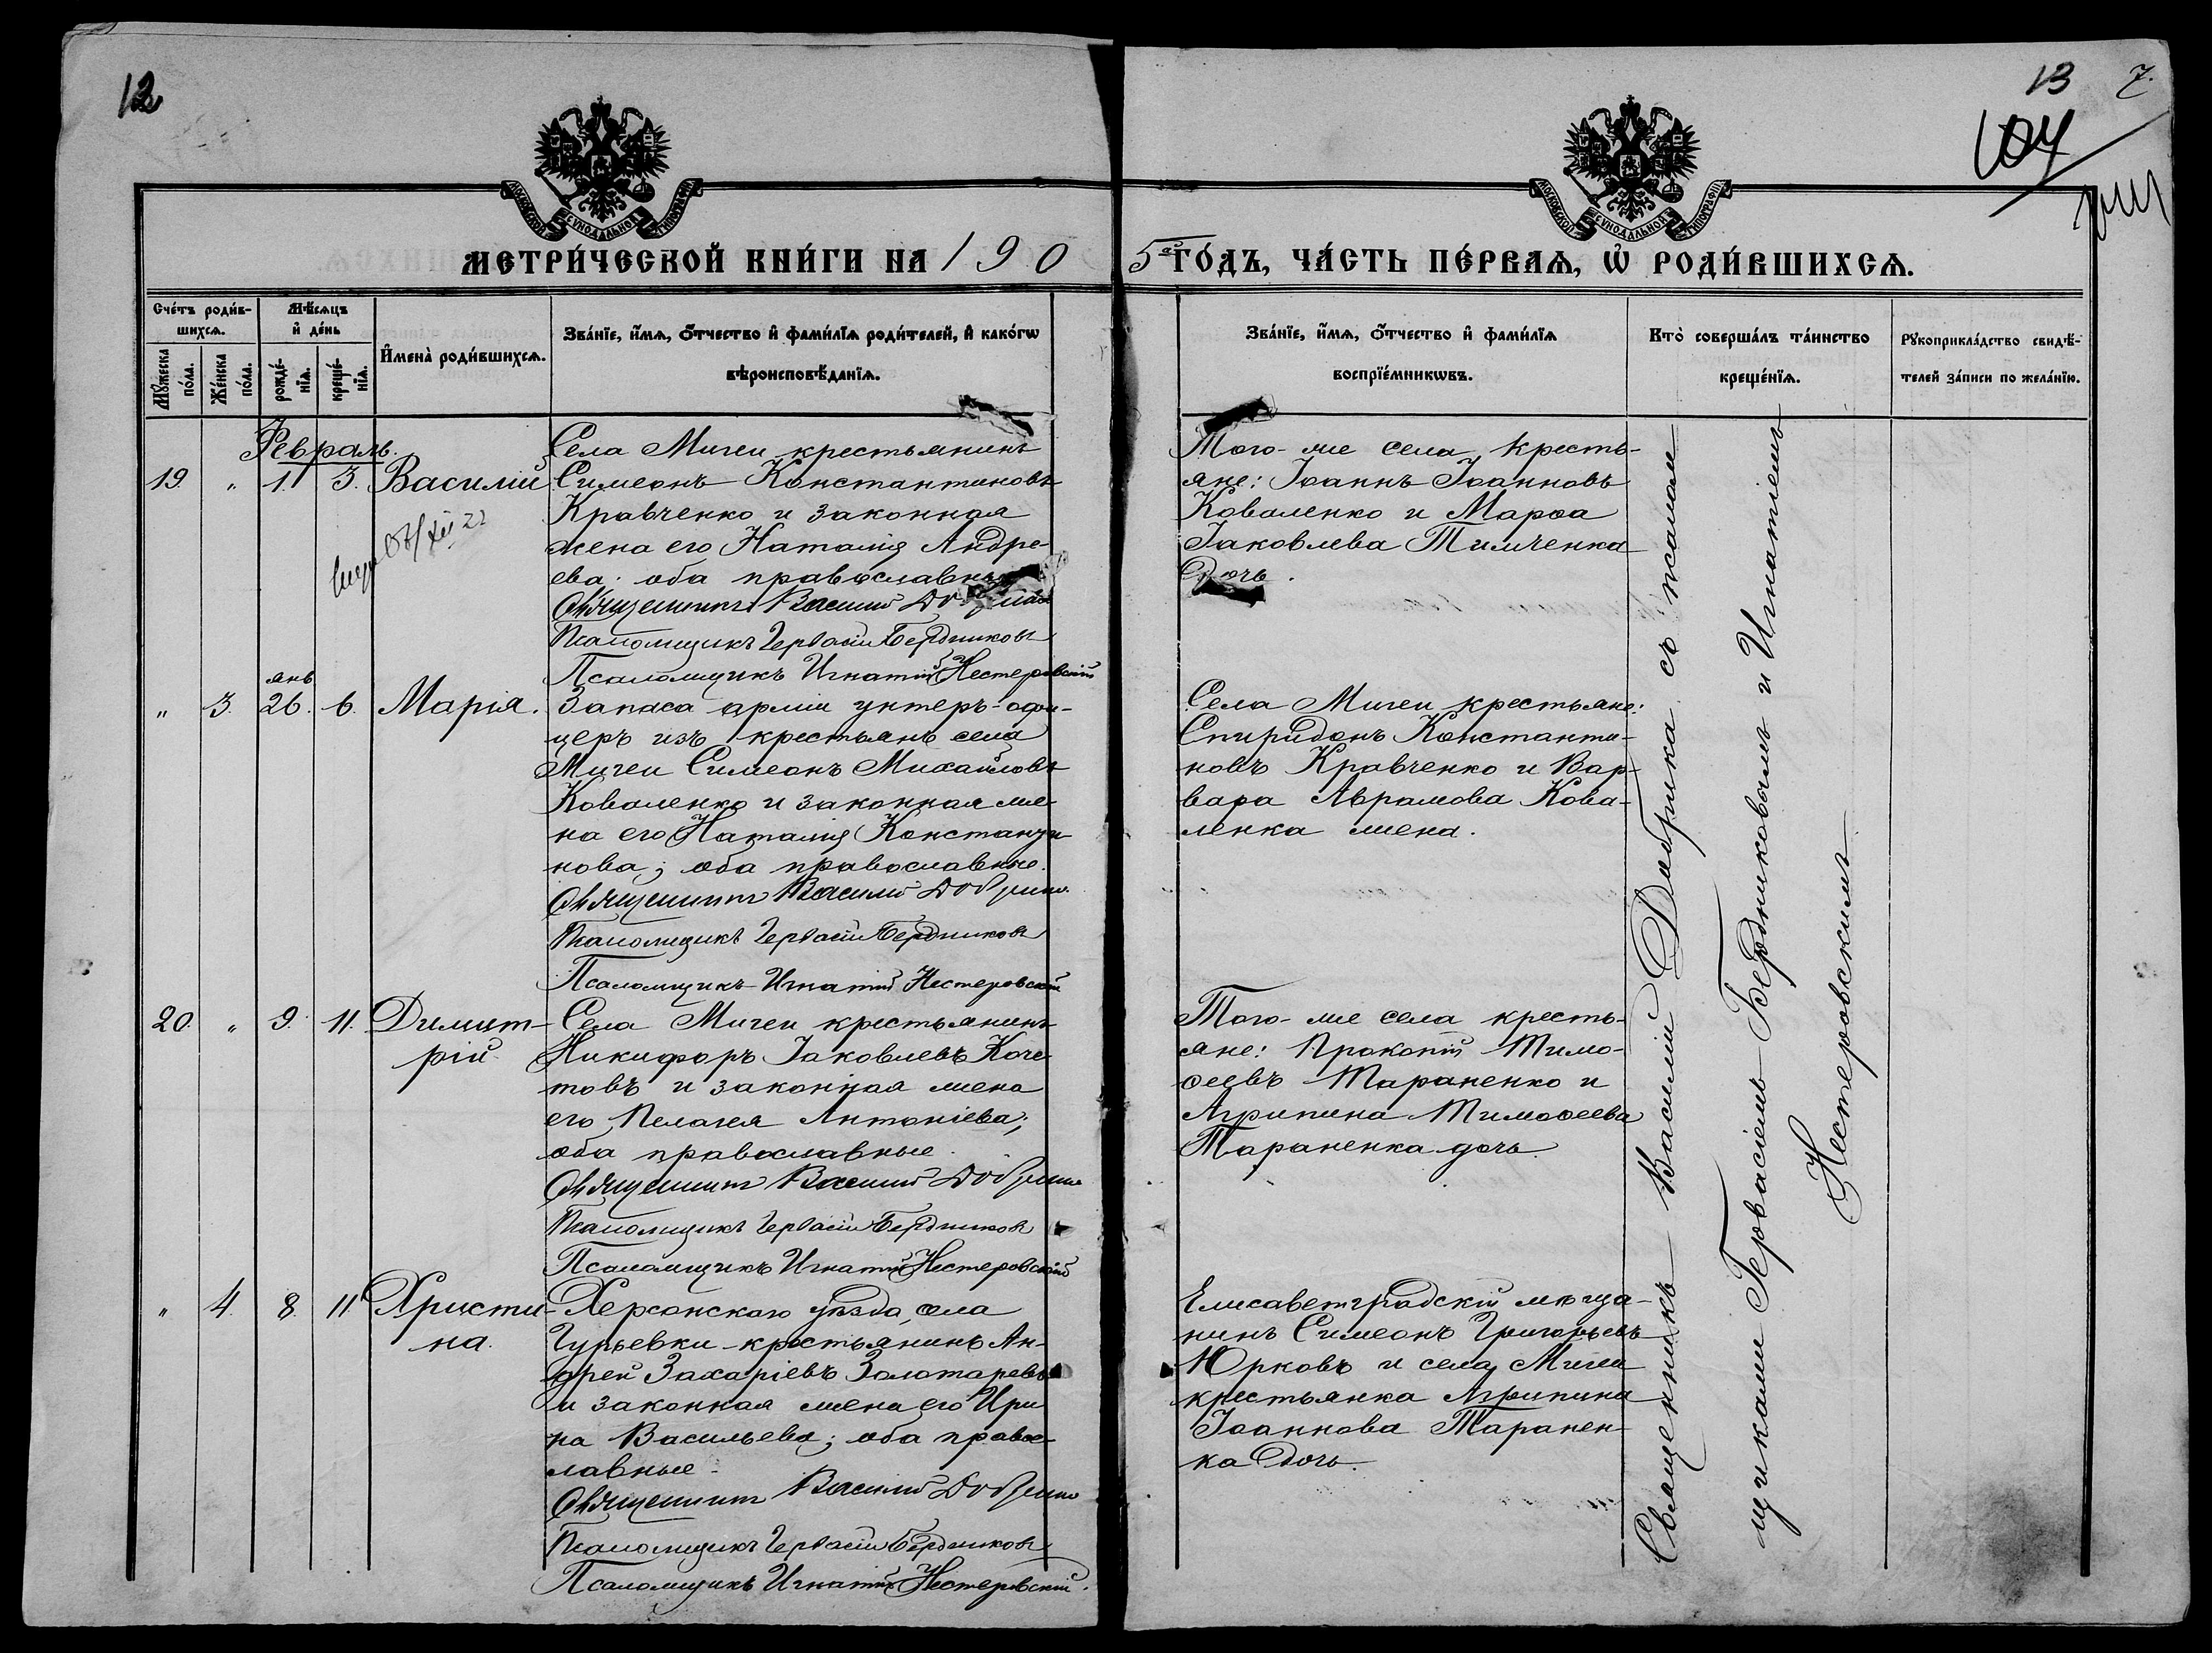 12
13
7.
104
МОСКОВСКОЙ СУНОДАЛЬНОЙ ТИПОГРАФІИ
МОСКОВСКОЙ СУНОДАЛЬНОЙ ТИПОГРАФІИ
МЕТРИ́ЧЕСКОЙ КНИ́ГИ НА 190
5й ГО́ДЪ, ЧА́СТЬ ПЕ́РВАѦ, Ѡ҆ РОДИ́ВШИХСѦ.
Сче́тъ роди́в-
шихсѧ.
Мꙋ́жеска по́ла.
Же́нска по́ла.
Мѣ́сѧцъ
и҆ де́нь
рожде́-
нїѧ.
креще́-
нїѧ.
И҆мена̀ роди́вшихсѧ.
Зва́нїе, и҆́мѧ, ѻ҆́тчество и҆ фами́лїѧ роди́телей, и҆ како́гѡ
вѣроисповѣ́данїѧ.
Зва́нїе, и҆́мѧ, ѻ҆́тчество и҆ фами́лїѧ
воспрїе́мникѡвъ.
Кто̀ соверша́лъ та́инство
креще́нїѧ.
Рꙋкоприкла́дство свидѣ́-
телей за́писи по жела́нїю.
Февраль.
19. " 1. 3. Василій
Села Мигеи крестьянинъ
Симеонъ Константиновъ
Кравченко и законная
жена его Наталія Андре-
ева; оба православные
Священникъ Василій
Псаломщикъ Гервасій Бердниковъ
Псаломщикъ Игнатій Нестеровскій
Того-же села кресть-
яне: Іоаннъ Іоанновъ
Коваленко и Марѳа
Іаковлева Тимченка
дочь.
янв
" 3. 26. 6. Марія.
Запаса арміи унтеръ-офи-
церъ изъ крестьянъ села
Мигеи Симеонъ Михайловъ
Коваленко и законная же-
на его Наталія Константи-
нова; оба православные.
Священникъ Василій Добрика
Псаломщикъ Гервасій Бердниковъ
Псаломщикъ Игнатій Нестеровскій
Села Мигеи крестьяне:
Спиридонъ Константи-
новъ Кравченко и Вар-
вара Аврамова Кова-
ленка жена.
20. " 9. 11. Димит-
рій
Села Мигеи крестьянинъ
Никифоръ Іаковлевъ Коче-
товъ и законная жена
его Пелагея Антоніева;
оба православные.
Священникъ Василій Добрика
Псаломщикъ Гервасій Бердниковъ
Псаломщикъ Игнатій Нестеровскій
Того-же села кресть-
яне: Прокопій Тимо-
ѳеевъ Тараненко и
Агрипина Тимоѳеева
Тараненка дочь.
" 4. 8. 11. Христи-
на.
Херсонскаго уѣзда, села
Гурьевки крестьянинъ Ан-
дрей Захаріевъ Золотаревъ
и законная жена его Ири
на Васильева; оба право-
лавные.
Священникъ Василій Добрика
Псаломщикъ Гервасій Бердниковъ
Псаломщикъ Игнатій Нестеровскій.
Елисаветградскій мѣща-
нинъ Симеонъ Григорьевъ
Юрковъ и села Мигеи
крестьянка Агрипина
Іоаннова Таранен-
ка дочь.
Священникъ Василій Добрика съ псалом
щиками Гервасіемъ Бердниковымъ и Игнатіемъ
Нестеровскимъ